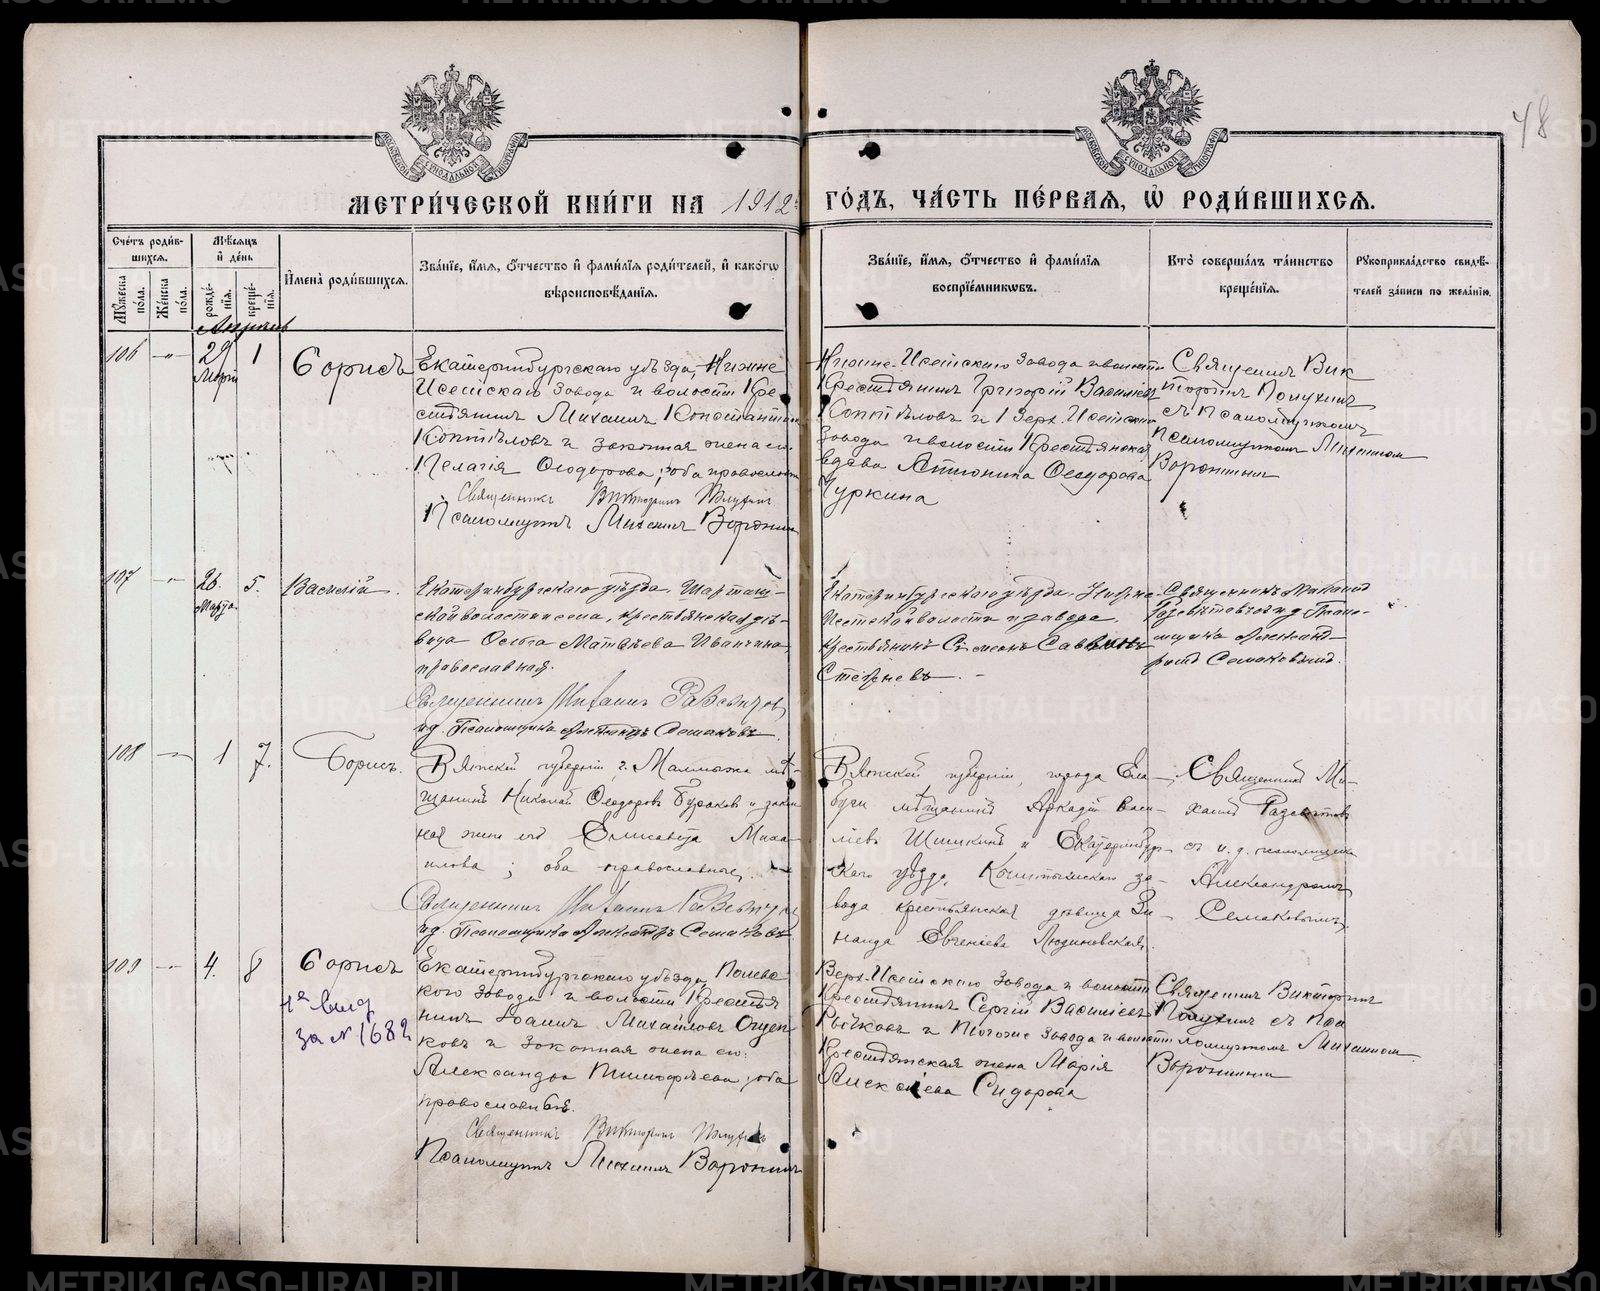 48
МОСКОВСКОЙ СѴНОДАЛЬНОЙ ТИПОГРАФІИ
МОСКОВСКОЙ СѴНОДАЛЬНОЙ ТИПОГРАФІИ
МЕТРИ́ЧЕСКОЙ КНИ́ГИ НА 1912 ГО́ДЪ, ЧА́СТЬ ПЕ́РВАЯ, Ѡ҆ РОДИ́ВШИХСЯ.
Сче́тъ роди́в-
шихся.
Мꙋ́жеска по́ла.
Же́нска по́ла.
Мѣ́сяцъ
и҆ де́нь
рожде́-
нїя.
креще́-
нїя.
И҆мена̀ роди́вшихся.
Зва́нїе, и҆́мя, ѻ҆́тчество и҆ фами́лїя роди́телей, и҆ како́гѡ
вѣроисповѣ́данїя.
Зва́нїе, и҆́мя, ѻ҆́тчество и҆ фами́лїя
воспрїе́мникѡвъ.
Кто̀ соверша́лъ та́инство
креще́нїя.
Рꙋкоприкла́дство свидѣ́-
телей за́писи по жела́нїю.
Апрѣль
106
29
Март
1
Борисъ
Екатеринбургскаго уѣзда, Нижне
Исетскаго завода и волости Кре
стьянинъ Михаилъ Константин
Коптѣловъ и законная жена его
Пелагія Ѳеодорова, оба православн
Священникъ Викторинъ Полухин
Псаломщикъ Михаилъ Воронин
Нижне-Исетскаго завода и волости
Крестьянинъ Григорій Васильев
Коптѣловъ и Верх-Исетскаго
завода и волости Крестьянская
вдова Антонина Ѳеодорова
Чуркина
Священникъ Вик
торинъ Полухинъ
съ Псаломщикомъ
Михаиломъ
Воронинымъ
107
26.
Марта
5.
Василій.
Екатеринбургскаго уѣзда, Шарташ-
ской волости и села, крестьянская дѣ-
вица Ольга Матвѣева Иванчина,
православная.
Священникъ Михаилъ
и.д. Псаломщика Александръ Семаковъ.
Екатеринбургскаго уѣзда, Нижне-
Исетской волости и завода,
крестьянинъ Симеонъ Саввинъ
Священникъ Михаилъ
и.д. Псало-
мщика Александ-
Семаковымъ.
108
1
7.
Борисъ.
Вятской губерніи, г. Малмыжа мѣ-
щанинъ Николай Ѳеодоровъ Бураковъ и закон
ная жена его Елисавета Миха-
илова; оба православные.
Священникъ Михаилъ
и.д. Псаломщика Александръ Семаковъ.
Вятской губерніи, города Ела-
буги мѣщанинъ Аркадій Васи-
ліевъ Шишкинъ и Екатеринбург-
скаго уѣзда, Кыштымскаго за-
вода крестьянская дѣвица Зи-
наида Евгеніева Людиновская.
Священникъ Ми-
хаилъ
съ и.д. псаломщика
Александромъ
Семаковымъ.
109
4.
8
Борисъ
за № 1682
Екатеринбургскаго уѣзда, Полевс
кого завода и волости Крестья
нинъ Іоаннъ Михайловъ
ковъ и законная жена его
Александра Тимофѣева, оба
православныя.
Священникъ Викторинъ Полухин
Псаломщикъ Михаилъ Воронинъ
Верх-Исетскаго завода и волости
Крестьянинъ Сергій Васильевъ
завода и волости
Крестьянская жена Марія
Алексѣева Сидорова
Священникъ Викторинъ
Полухинъ съ Пса
ломщикомъ Михаиломъ
Воронинымъ